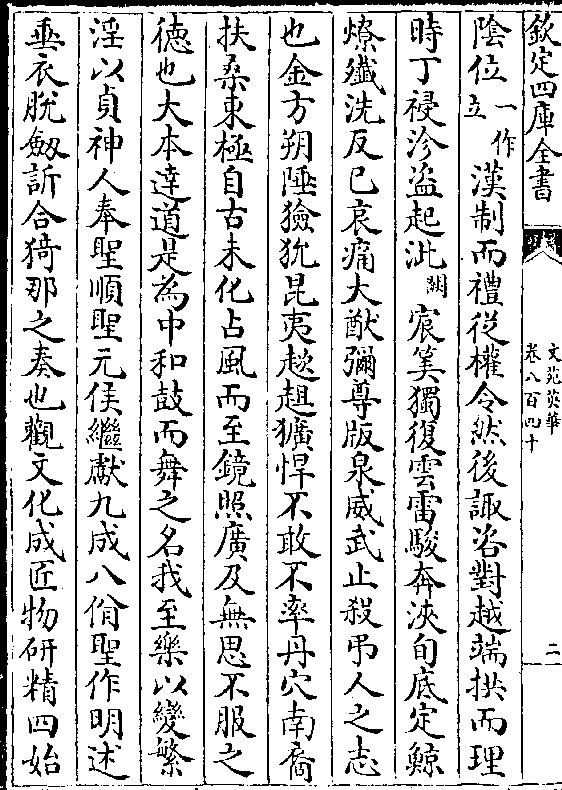 欽定四庫全書
文苑英華
卷八百四十
二
陰位一作立漢制而禮從權令然後諏咨對越端拱而理
時丁祲沴盜起泚闕宸筭獨復雲雷駿奔浹旬底定鯨
燎殱洗反已哀痛大猷彌尊版泉威武止殺弔人之志
也金方朔陲獫狁昆夷趑趄獷悍不敢不率丹穴南裔
扶桑東極自古未化占風而至鏡照廣及無思不服之
徳也大本達道是為中和鼓而舞之名我至樂以變繁
淫以貞神人奉聖順聖元侯繼獻九成八佾聖作明述
垂衣脱劒訢合猗那之奏也觀文化成匠物研精四始